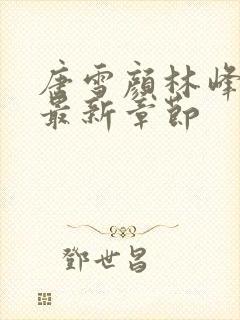 唐雪顏林峰
最新章節
鄧世昌